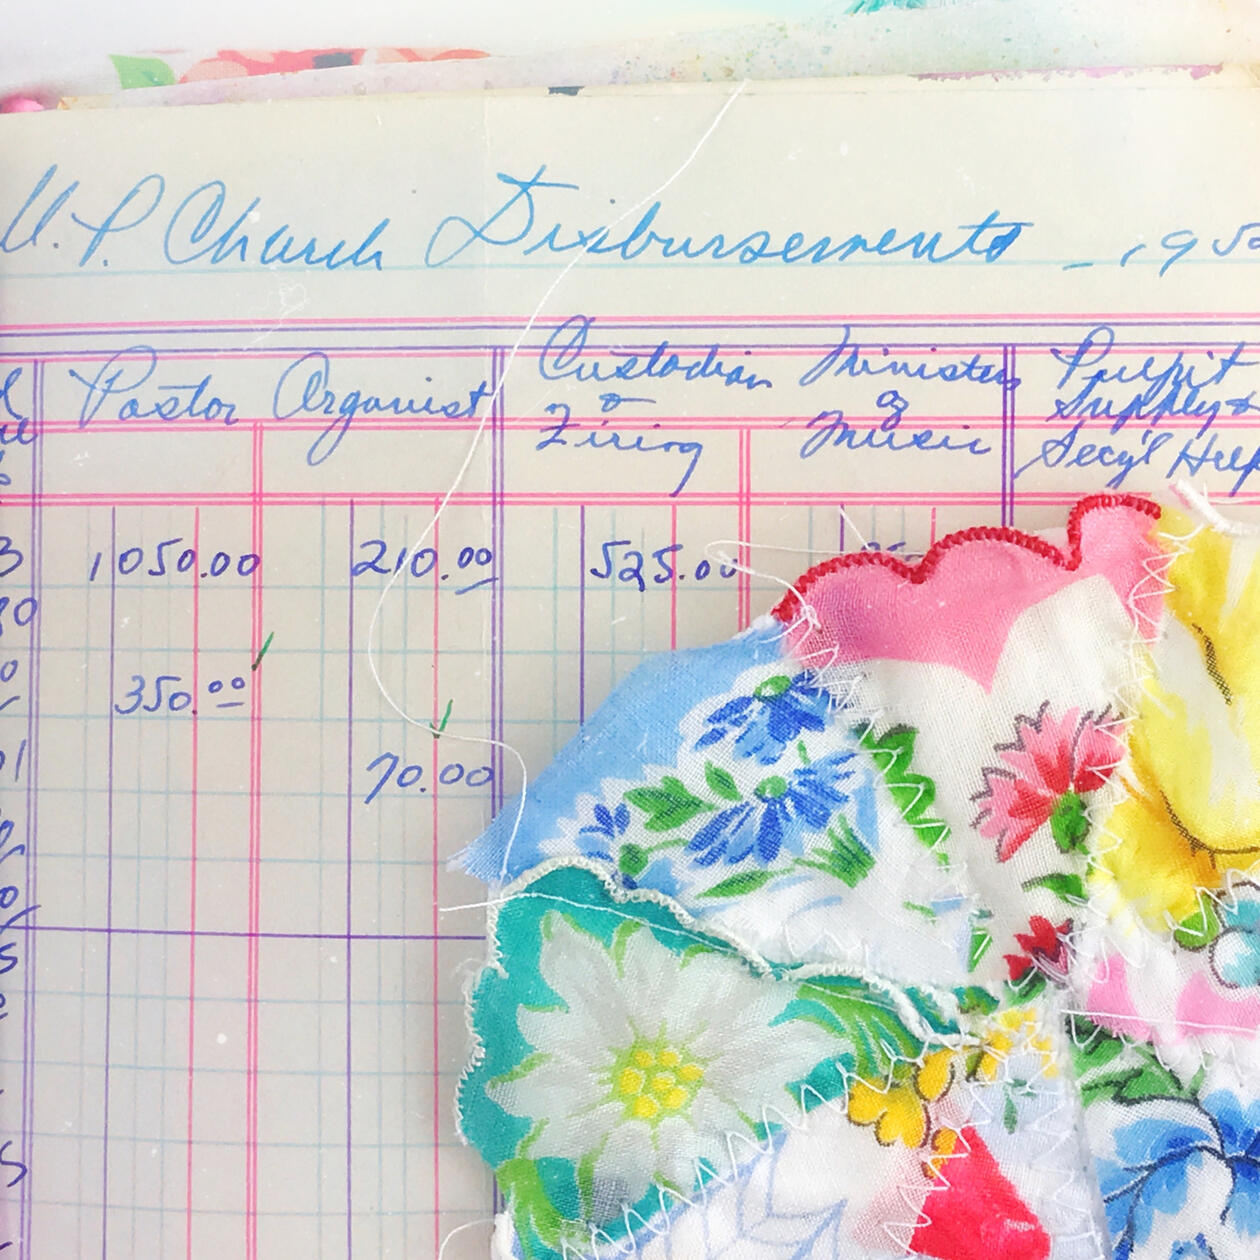 U.P. Church Disbursements - 195
Pastor Organist Custodian & Firing Minister of Music Pulpit Supply & Sec'y'l Help
1050.00 210.00 525.00
350.00
70.00